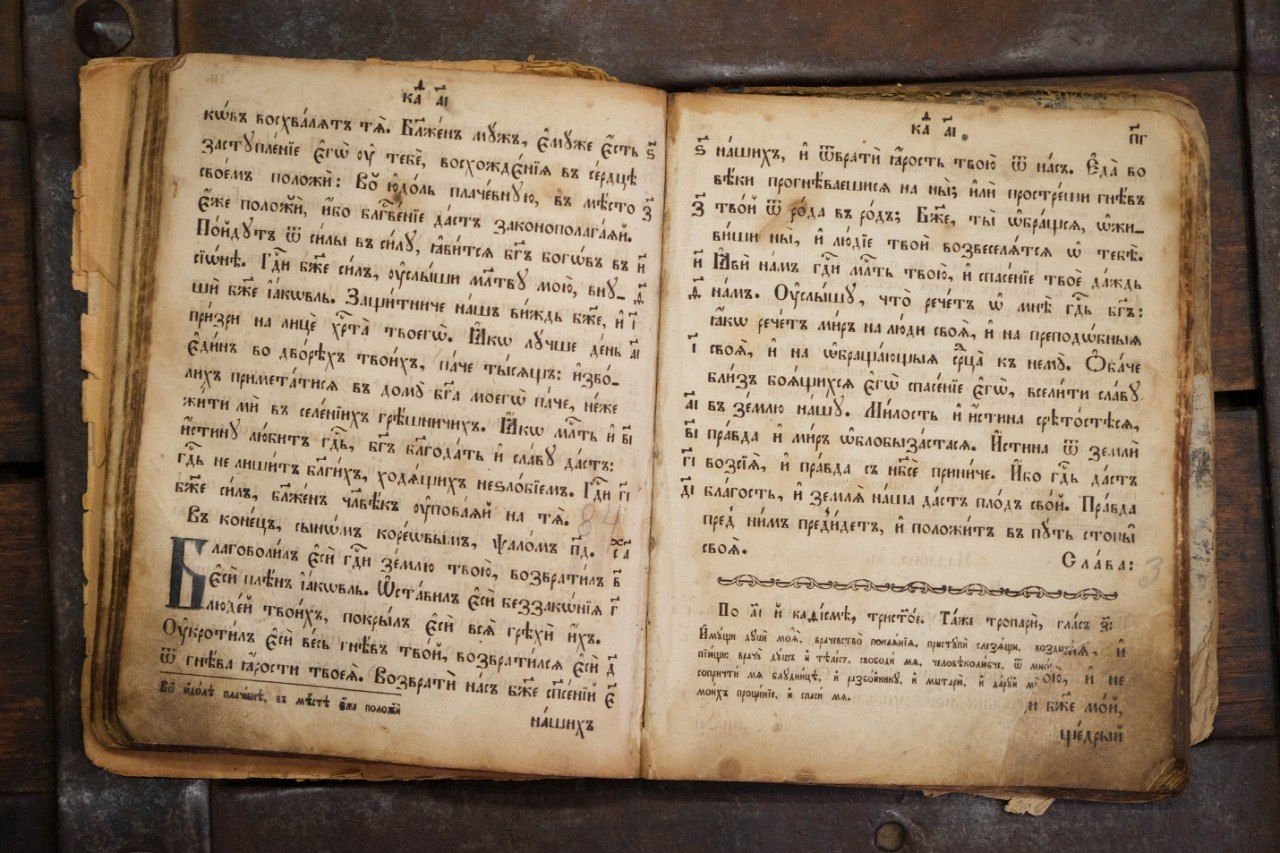 каѳ҃ а҃і
кѡ́въ восхва́лѧтъ тѧ̀. Бл҃же́нъ мꙋ́жъ, є҆мꙋ́же є҆́сть ѕ҃
застꙋпле́нїе є҆гѡ̀ ᲂу҆ тебє̀, восхождє́нїѧ въ се́рдцѣ
свое́мъ положѝ: Во ю҆до́ль плаче́внꙋю, въ мѣ́сто з҃
є҆́же положѝ, и҆́бо бл҃гве́нїе да́стъ законополага́ѧй.
По́йдꙋтъ ѿ си́лы въ си́лꙋ, ꙗ҆ви́тсѧ бг҃ъ богѡ́въ въ и҃
сїѡ́нѣ. Гдⷭ҇и бж҃е си́лъ, ᲂу҆слы́ши мл҃твꙋ мою̀, внꙋ- ѳ҃
шѝ бж҃е і҆а́кѡвль. Защи́тниче на́шъ ви́ждь бж҃е, и҆ і҃
при́зри на лицѐ хрⷭ҇та̀ твоегѡ̀. Ꙗ҆́кѡ лꙋ́чше де́нь а҃і
є҆ди́нъ во дво́рѣхъ твои́хъ, па́че ты́сѧщъ: и҆зво́-
лихъ примета́тисѧ въ домꙋ̀ бг҃а моегѡ̀ па́че, не́же
жи́ти мѝ въ селе́нїихъ грѣ́шничихъ. Ꙗ҆́кѡ млⷭ҇ть и҆ в҃і
и҆́стинꙋ лю́битъ гдⷭ҇ь, бг҃ъ бл҃года́ть и҆ сла́вꙋ да́стъ:
гдⷭ҇ь не лиши́тъ бл҃ги́хъ, ходѧ́щихъ неѕло́бїемъ. Гдⷭ҇и г҃і
бж҃е си́лъ, бл҃же́нъ человѣ́къ ᲂу҆пова́ѧй на тѧ̀.
84
Въ коне́цъ, сынѡ́мъ коре́ѡвымъ, ѱало́мъ п҃д. а҃
Благоволи́лъ є҆сѝ гдⷭ҇и зе́млю твою̀, возврати́лъ в҃
є҆сѝ плѣ́нъ і҆а́кѡвль. Ѡ҆ста́вилъ є҆сѝ беззакѡ́нїѧ г҃
люде́й твои́хъ, покры́лъ є҆сѝ всѧ̀ грѣхѝ и҆́хъ.
Оу҆кроти́лъ є҆сѝ ве́сь гнѣ́въ тво́й, возврати́лсѧ є҆сѝ д҃
ѿ гнѣ́ва ꙗ҆́рости твоеѧ̀. Возвратѝ на́съ бж҃е сп҃се́нїй є҃
Во ю҆до́лѣ плаче́внѣ, въ мѣ́стѣ є҆́же положѝ
на́шихъ
каѳ҃ а҃і
п҃г
ѕ҃ на́шихъ, и҆ ѿвратѝ ꙗ҆́рость твою̀ ѿ на́съ. Є҆да̀ во
вѣ́ки прогнѣ́ваешисѧ на ны̀; и҆лѝ простре́ши гнѣ́въ
з҃ тво́й ѿ ро́да въ ро́дъ; Бж҃е, ты̀ ѡ҆бра́щсѧ, ѡ҆жи-
ви́ши ны̀, и҆ лю́дїе твоѝ возвеселѧ́тсѧ ѡ҆ тебѣ̀.
и҃ Ꙗ҆вѝ на́мъ гдⷭ҇и млⷭ҇ть твою̀, и҆ спасе́нїе твоѐ да́ждь
ѳ҃ на́мъ. Оу҆слы́шꙋ, что̀ рече́тъ ѡ҆ мнѣ̀ гдⷭ҇ь бг҃ъ:
ꙗ҆́кѡ рече́тъ ми́ръ на лю́ди своѧ̑, и҆ на преподѡ́бныѧ
і҃ своѧ̑, и҆ на ѡ҆браща́ющыѧ срⷣца̀ къ немꙋ̀. Ѻ҆ба́че
бли́зъ боѧ́щихсѧ є҆гѡ̀ спасе́нїе є҆гѡ̀, всели́ти сла́вꙋ
а҃і въ зе́млю на́шꙋ. Ми́лость и҆ и҆́стина срѣто́стѣсѧ,
в҃і пра́вда и҆ ми́ръ ѡ҆блобыза́стасѧ. И҆́стина ѿ землѝ
г҃і возсїѧ̀, и҆ пра́вда съ нб҃сѐ прини́че. И҆́бо гдⷭ҇ь да́стъ
д҃і бла́гость, и҆ землѧ̀ на́ша да́стъ пло́дъ сво́й. Пра́вда
пред̾ ни́мъ пред̾и́детъ, и҆ положи́тъ въ пꙋ́ть стопы̀
своѧ̑.
Сла́ва:
3
По а҃і й каѳі́смѣ, трист҃о́е. Та́же тропарѝ, гла́съ з҃:
И҆мꙋ́щи дꙋшѐ моѧ̀, врачевство̀ покаѧ́нїѧ, пристꙋпѝ слезѧ́щи,
пїю́щи: врачꙋ̀ дꙋ́шъ и҆ тѣле́съ, свободи́ мѧ, человѣколю́бче, ѿ
сопричти́ мѧ блꙋдни́цѣ, и҆ разбо́йникꙋ, и҆ мытарю̀, и҆ да́рꙋй и҆ не
мои́хъ проще́нїе, и҆ спаси́ мѧ.
и҆ бж҃е мо́й,
ще́дрый